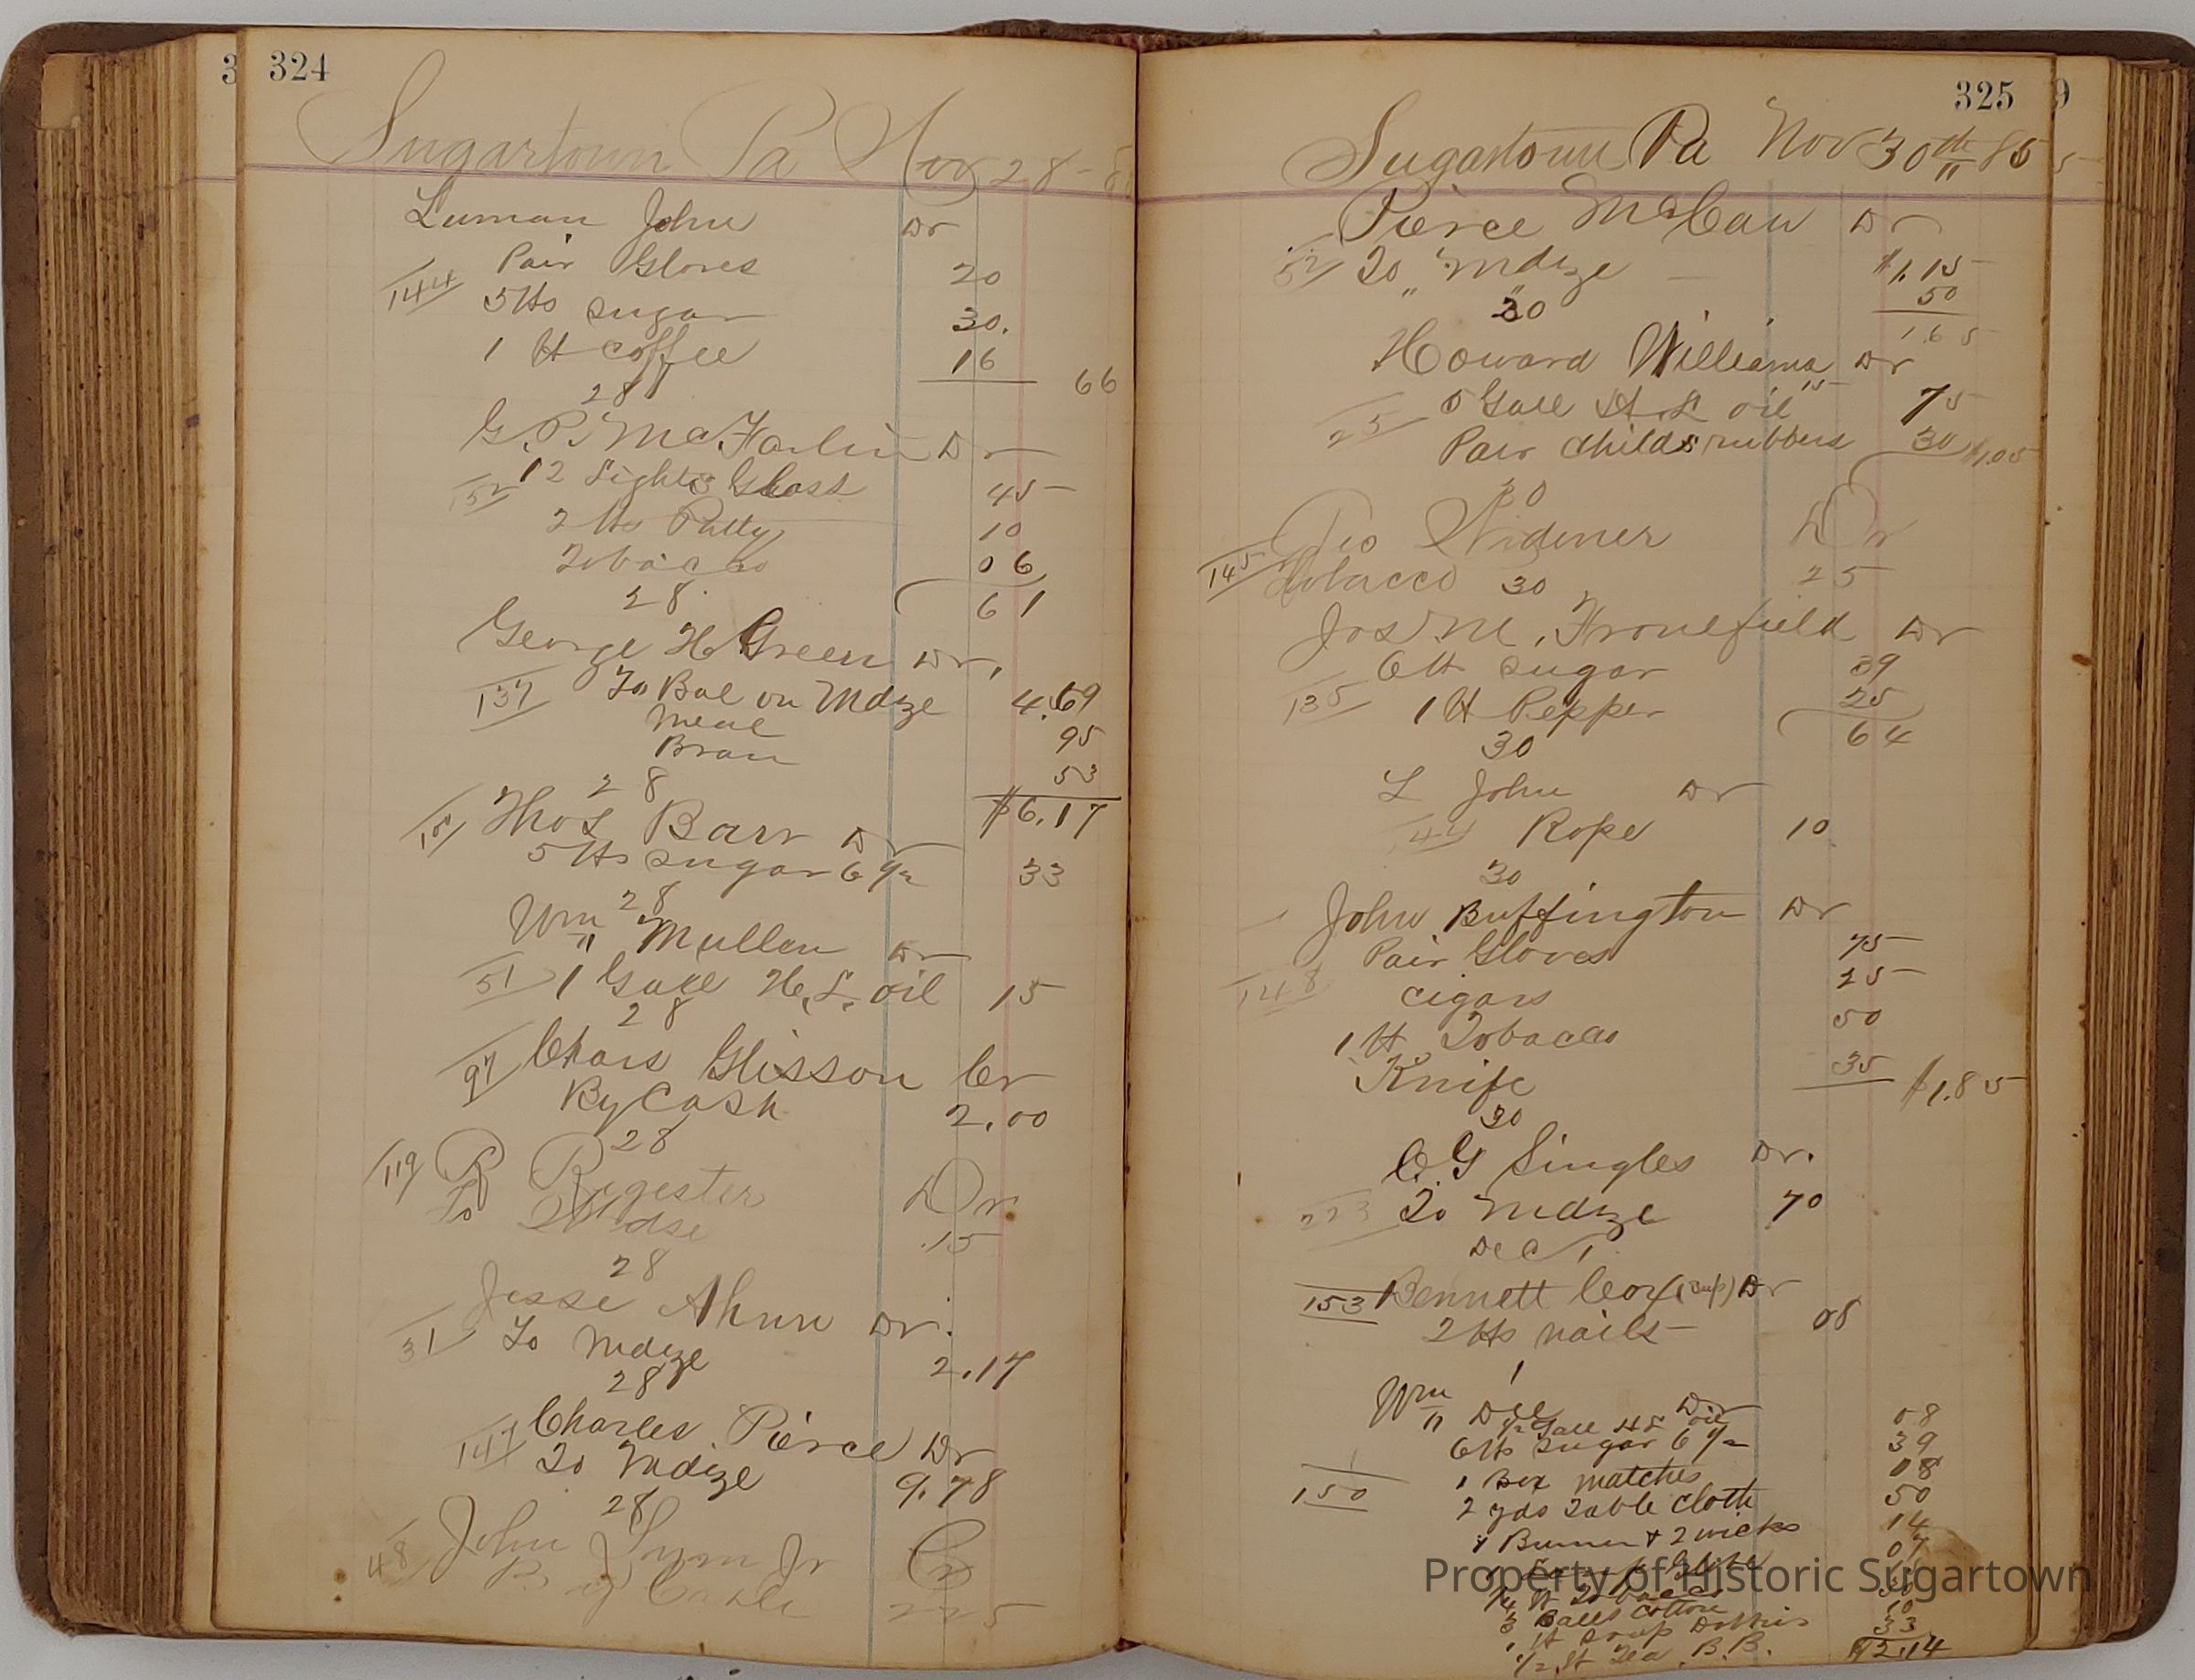 3 324
Sugartown Pa Nov 28-8
Luman John Dr
Pair Gloves 20
144 5 lbs sugar 30.
1 lb coffee 16 66
28
G. P. McFarlin Dr
152 12 Lights Glass 45
2 lbs Putty 10
Tobacco 06
28. 61
George H Green Dr.
137 To Bal on Mdze 4.69
Meal 95
Bran 53
28 $6.17
Thos Barr Dr
5 lbs sugar 6 1/2 33
28
Wm Mullen Dr
51 1 Gall H.L. oil 15
28
97 Chars Glisson Cr
By Cash 2.00
28
119 R Regester Dr
To Mdse .15
28
Jesse Ahun Dr.
31 To Mdze 2.17
28
Charles Pierce Dr
147 To Mdze 9.78
28
48 John Lynn Jr Cr
By 225
325 9
Sugartown Pa Nov 30th 85
Pierce McCaw Dr
52 To Mdze $1.15
" " 50
30 1.65
Howard Williams Dr
5 Gall H.L. oil 15 75
25 Pair childs rubbers 30 $1.05
30
Geo Widener Dr
145 Tobacco 30 25
Jos M. Fronefield Dr
6 lb sugar 39
135 1 lb Pepper 25
30 64
L John Dr
44 Rope 10
30
John Buffington Dr
Pair Gloves 75
148 cigars 25
1 lb Tobacco 50
Knife 35 $1.85
30
C. G Singles Dr.
223 To Mdze 70
Dec 1
153 Bennett Cox Dr
2 lbs nails 08
1
Wm Dr
1/2 Gall HL oil 08
6 lbs sugar 6 1/2 39
150 1 Box matches 08
2 yds Table cloth 50
1 Burner + 2 wicks 14
07
1/4 lb Tobacco
3 Balls cotton 10
1 lb 
1/2 lb Tea B.B. 33
$2.14
Property of Historic Sugartown